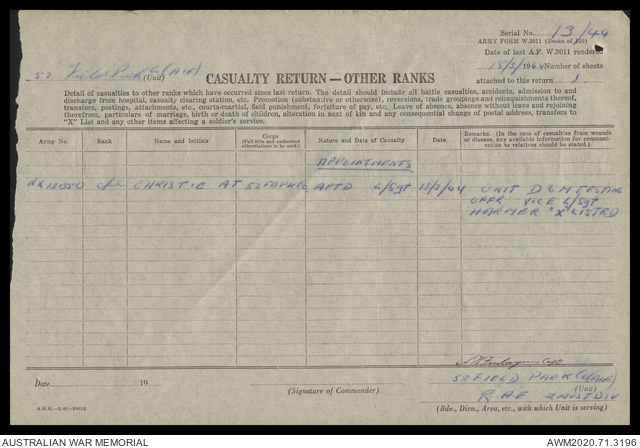 Serial No. 13/44
ARMY FORM W.3011 (Books of 100)
Date of last A.F. W.3011 rendered
15/3/1944 Number of sheets
52 Field Park Co (AIF)
(Unit)
CASUALTY RETURN—OTHER RANKS
attached to this return 1.
Detail of casualties to other ranks which have occurred since last return. The detail should include all battle casualties, accidents, admission to and
discharge from hospital, casualty clearing station, etc. Promotion (substantive or otherwise), reversions, trade groupings and relinquishments thereof,
transfers, postings, attachments, etc., courts-martial, field punishment, forfeiture of pay, etc. Leave of absence, absence without leave and rejoining
therefrom, particulars of marriage, birth or death of children, alteration in next of kin and any consequential change of postal address, transfers to
"X" List and any other items affecting a soldier's service.
Army No. Rank Name and Initials Corps (Full title and authorized abbreviations to be used.) Nature and Date of Casualty Date Remarks. (In the case of casualties from wounds or disease, any available information for communication to relatives should be stated.)
APPOINTMENTS
CHRISTIE AT 52 FD PK CO APTD L/Sgt 15/3/44 UNIT D & M TESTING
OFFR VICE L/Sgt
HARMER "X" LISTED
Capt
Date 19
(Signature of Commander)
52 FIELD PARK CO (AIF)
(Unit)
RAE 2 AUST DIV
(Bde., Divn., Area, etc., with which Unit is serving)
AUSTRALIAN WAR MEMORIAL
AWM2020.71.3196